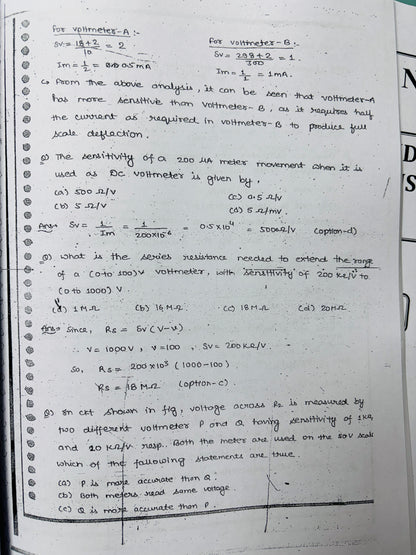 For voltmeter-A :-
Sv = 18+2/10 = 2
Im = 1/2 = 0.5mA
For voltmeter-B :-
Sv = 298+2/300 = 1.
Im = 1/1 = 1mA.
↳ From the above analysis, it can be seen that voltmeter-A
has more sensitive than voltmeter-B, as it requires half
the current as required in voltmeter-B to produce full
scale deflection.
Q) The sensitivity of a 200 μA meter movement when it is
used as DC voltmeter is given by,
(a) 500 Ω/V
(b) 5 Ω/V
(c) 0.5 Ω/V
(d) 5 Ω/mV
Ans:- Sv = 1/Im = 1/200×10⁻⁶ = 0.5×10⁴ = 5000Ω/V (option-d)
Q) What is the series resistance needed to extend the range
of a (0 to 100)V voltmeter, with sensitivity of 200 KΩ/V to
(0 to 1000) V
(a) 1 MΩ (b) 16 MΩ (c) 18 MΩ (d) 20MΩ
Ans:- Since, Rs = Sv (V-v)
∴ V = 1000V, v = 100, Sv = 200KΩ/V.
So, Rs = 200×10³ (1000-100)
Rs = 18 MΩ (option-c).
Q) In ckt shown in fig, voltage across R2 is measured by
two different voltmeter P and Q having sensitivity of 1KΩ
and 20 KΩ/V resp. Both the meter are used on the 50V scale
which of the following statements are true.
(a) P is more accurate than Q.
(b) Both meters read same voltage
(c) Q is more accurate than P.
N
D
S